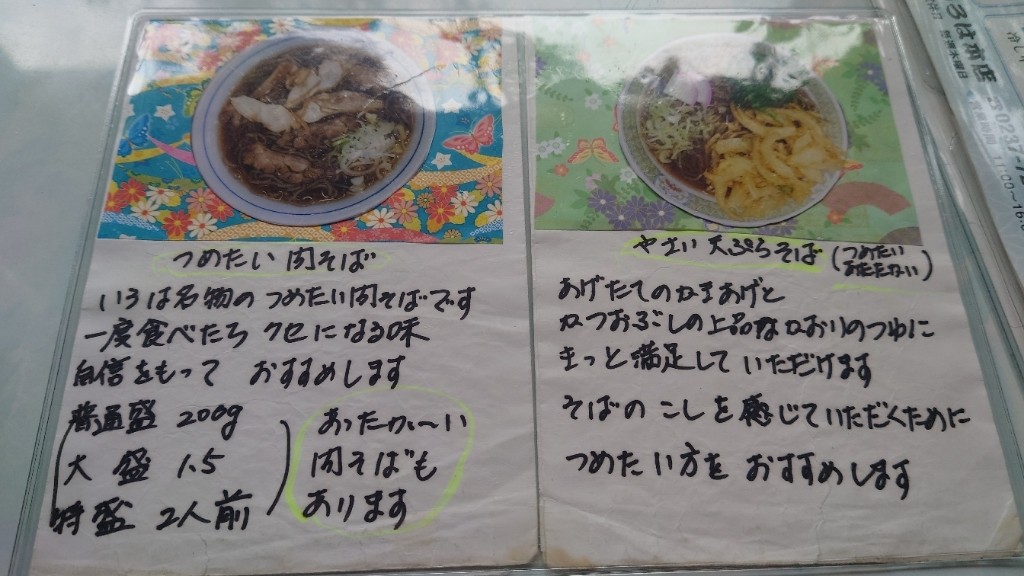 つめたい肉そば
いろは名物のつめたい肉そばです
一度食べたら クセになる味
自信をもって おすすめします
普通盛 200g
大盛 1.5
特盛 2人前
あったか〜い
肉そばも
あります
やさい天ぷらそば(つめたい
あたたかい)
あげたてのかきあげと
かつおぶしの上品なかおりのつゆに
きっと満足していただけます
そばのこしを感じていただくために
つめたい方をおすすめします
ろは本店